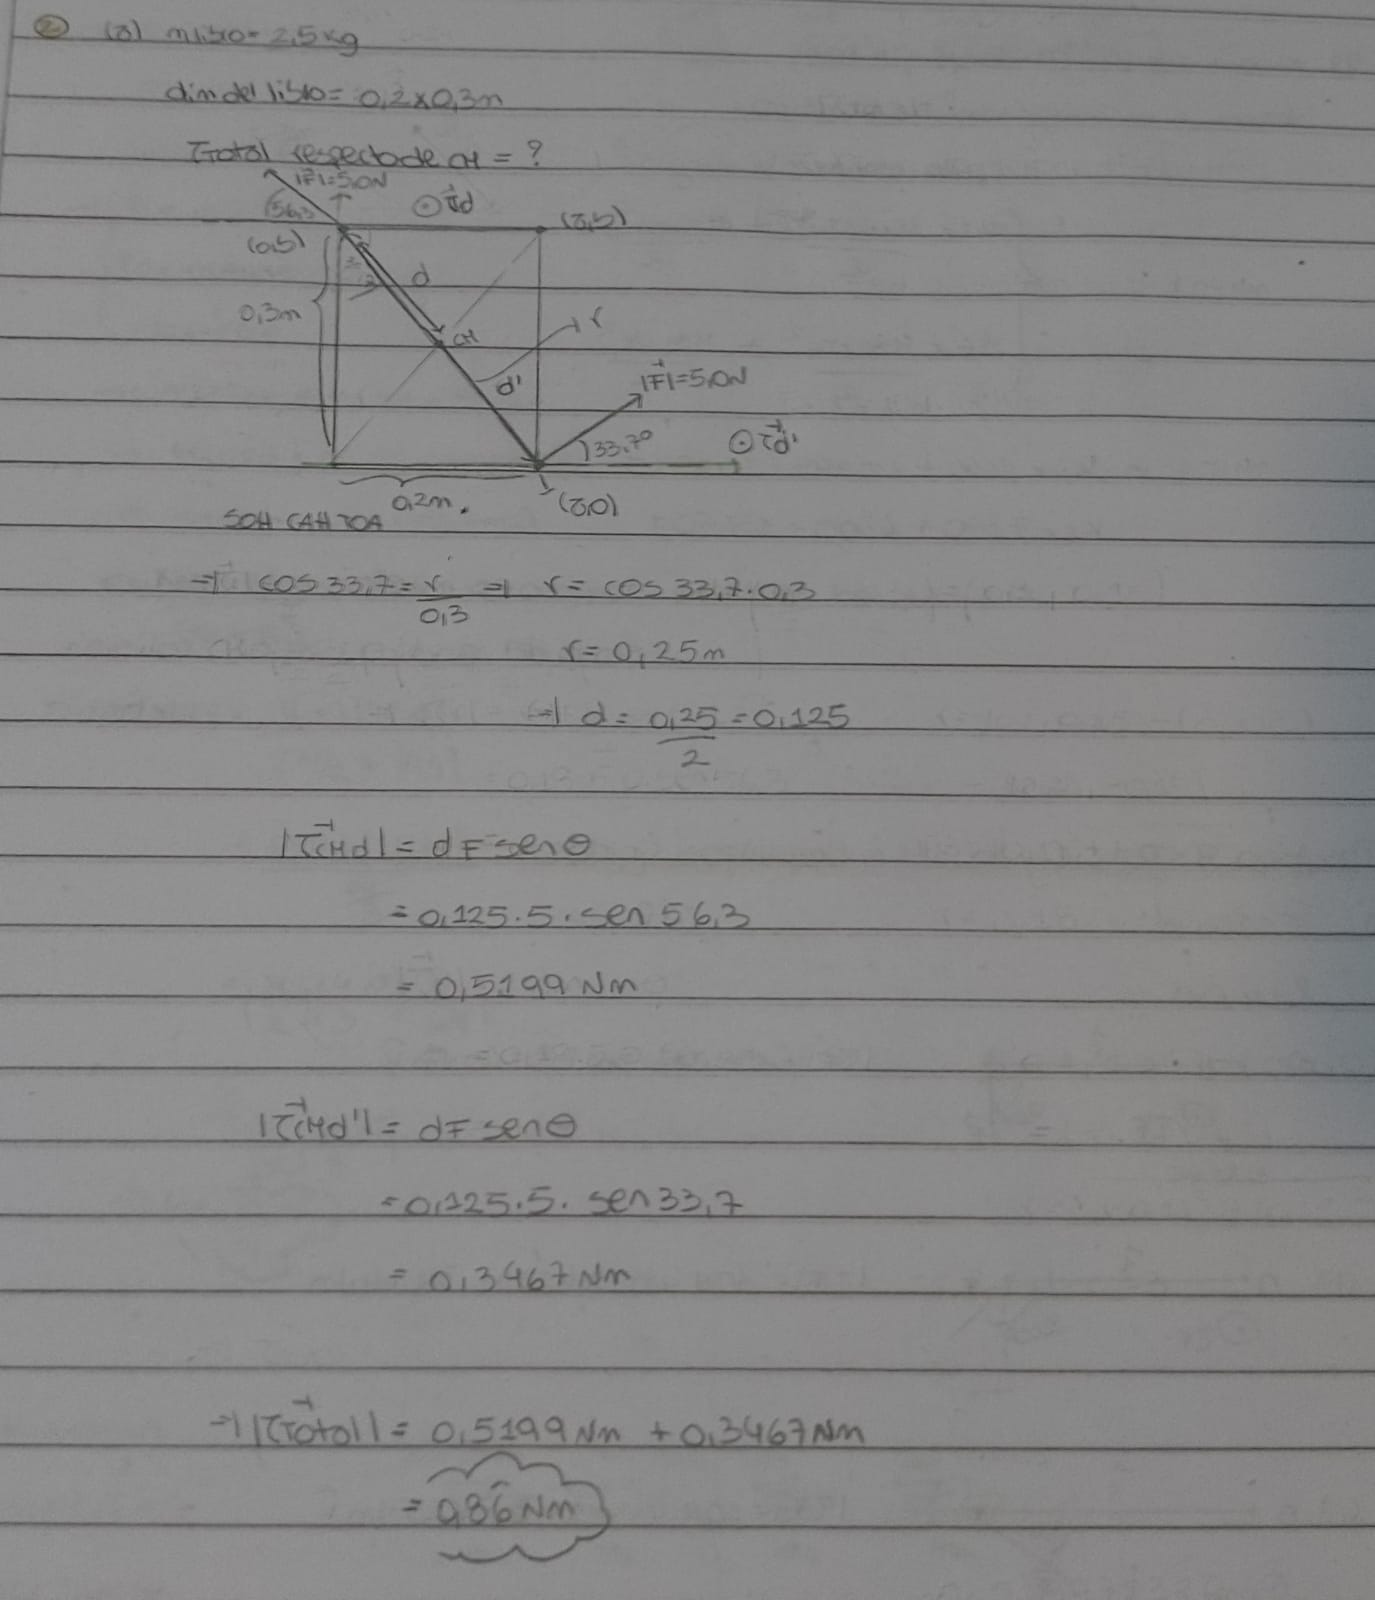 ② (a) mlibro= 2,5kg
dim del libro= 0,2x0,3m
τtotal respecto de CM = ?
|F⃗|=5,0N
56,3
⊙ τ⃗d
(a,b)
(0,b)
d
0,3m
CM
r
d'
|F⃗|=5,0N
33,7°
⊙ τ⃗d'
0,2m.
(a,0)
SOH CAH TOA
⇒ cos 33,7 = r/0,3 ⇒ r = cos 33,7 . 0,3
r = 0,25m
⇒ d = 0,25/2 = 0,125
|τ⃗CMd| = d F sen θ
= 0,125 . 5 . sen 56,3
= 0,5199 Nm
|τ⃗CMd'| = d F sen θ
= 0,125 . 5 . sen 33,7
= 0,3467 Nm
⇒ |τ⃗Total| = 0,5199 Nm + 0,3467 Nm
= 0,86 Nm